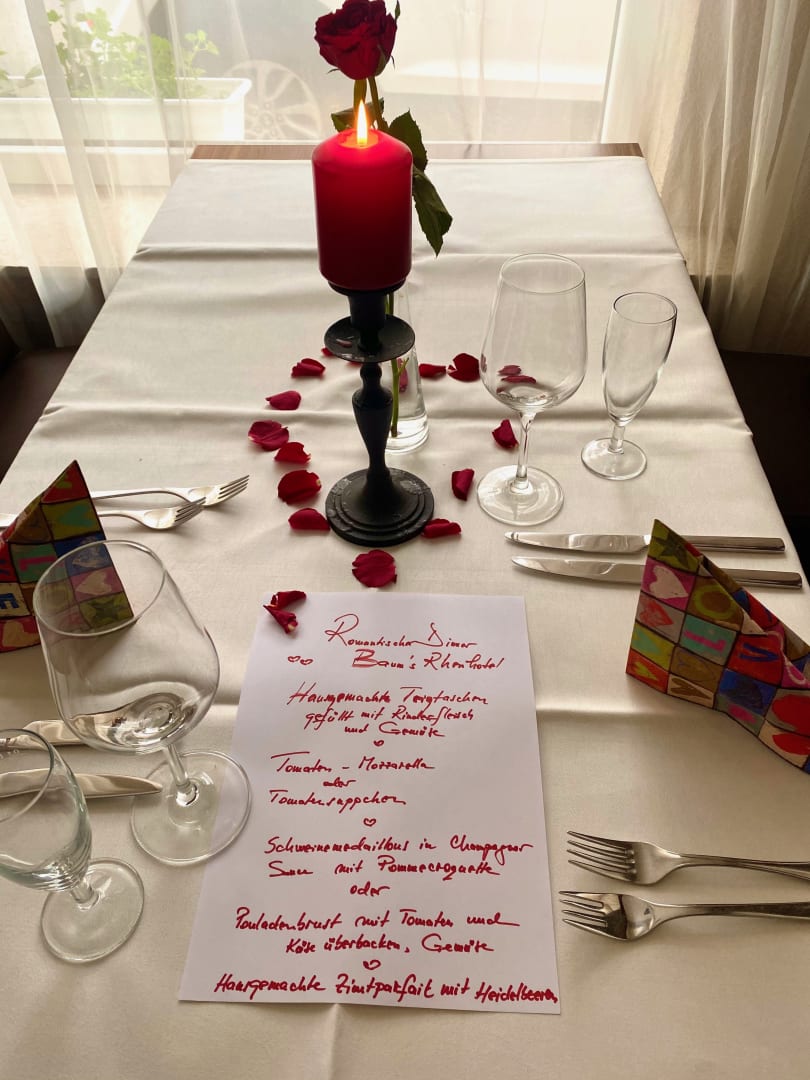 Romantischer Dinner
Baum's Rheinhotel
Hausgemachte Teigtaschen
gefüllt mit Rindfleisch
und Gemüse
Tomaten - Mozzarella
oder
Tomatensüppchen
Schweinemedaillons in Champagner
Sauce mit Pommecroquette
oder
Pouladenbrust mit Tomaten und
Käse überbacken, Gemüse
Hausgemachte Zimtparfait mit Heidelbeeren